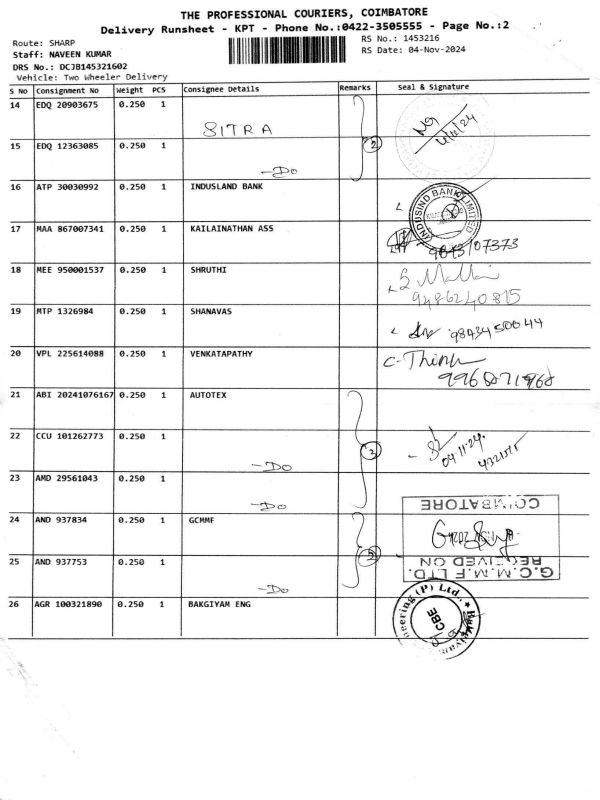 THE PROFESSIONAL COURIERS, COIMBATORE
Delivery Runsheet - KPT - Phone No.:0422-3505555 - Page No.:2
Route: SHARP
RS No.: 1453216
Staff: NAVEEN KUMAR
RS Date: 04-Nov-2024
DRS No.: DCJB145321602
Vehicle: Two Wheeler Delivery
S No Consignment No Weight PCS Consignee Details Remarks Seal & Signature
14 EDQ 20903675 0.250 1 SITRA
15 EDQ 12363085 0.250 1 -Do 2
16 ATP 30030992 0.250 1 INDUSLAND BANK
INDUSIND BANK LIMITED
17 MAA 867007341 0.250 1 KAILAINATHAN ASS
9843107373
18 MEE 950001537 0.250 1 SHRUTHI
9486240815
19 MTP 1326984 0.250 1 SHANAVAS 9843450044
20 VPL 225614088 0.250 1 VENKATAPATHY
21 ABI 20241076167 0.250 1 AUTOTEX
22 CCU 101262773 0.250 1 -Do 3 04.11.24.
23 AMD 29561043 0.250 1 -Do
COIMBATORE
24 AND 937834 0.250 1 GCMMF
25 AND 937753 0.250 1 -Do 2
RECEIVED ON
G.C.M.M.F LTD.
26 AGR 100321890 0.250 1 BAKGIYAM ENG
CBE